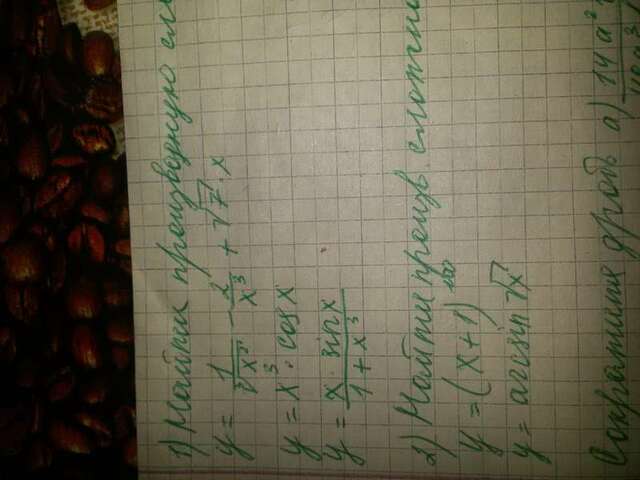 1) Найти производную сло
y = 1/√x² - 2/x³ + √7 · x
y = x³ · cos x
y = x · sin x / 1 + x³
2) Найти произв. сложно
y = (x+1)¹⁰⁰
y = arcsin √x
Сократите дробь а) 14a²